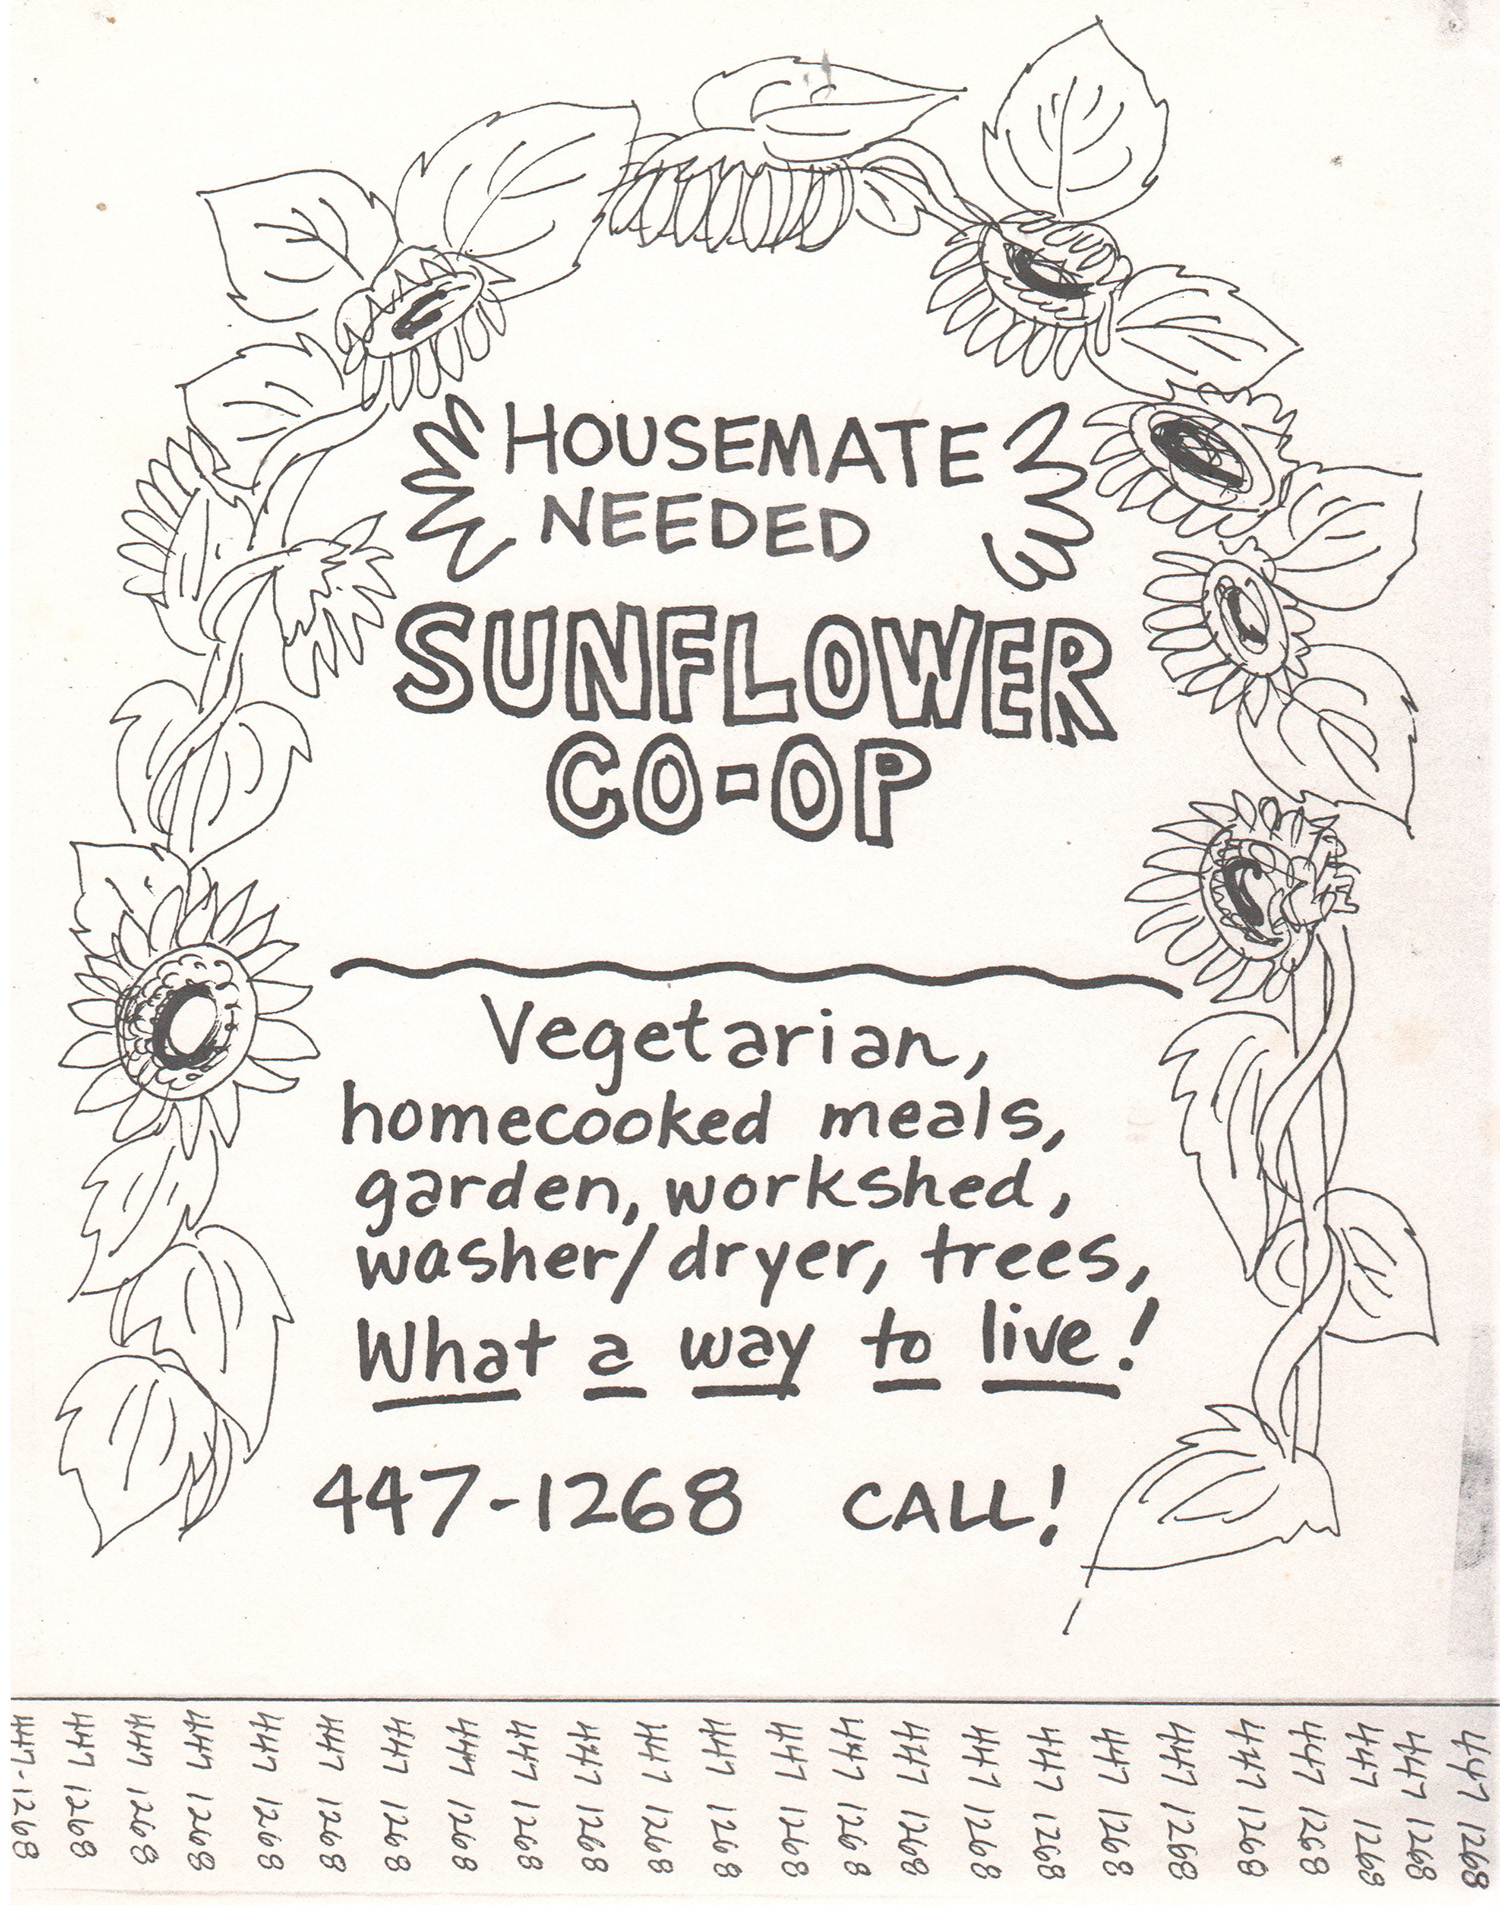 HOUSEMATE
NEEDED
SUNFLOWER
CO-OP
Vegetarian,
homecooked meals,
garden, workshed,
washer/dryer, trees,
What a way to live!
447-1268 CALL!
447-1268
447 1268
447 1268
447 1268
447 1268
447 1268
447 1268
447 1268
447 1268
447 1268
447 1268
447 1268
447 1268
447 1268
447 1268
447 1268
447 1268
447 1268
447 1268
447 1268
447 1268
447 1268
447 1268
447 1268